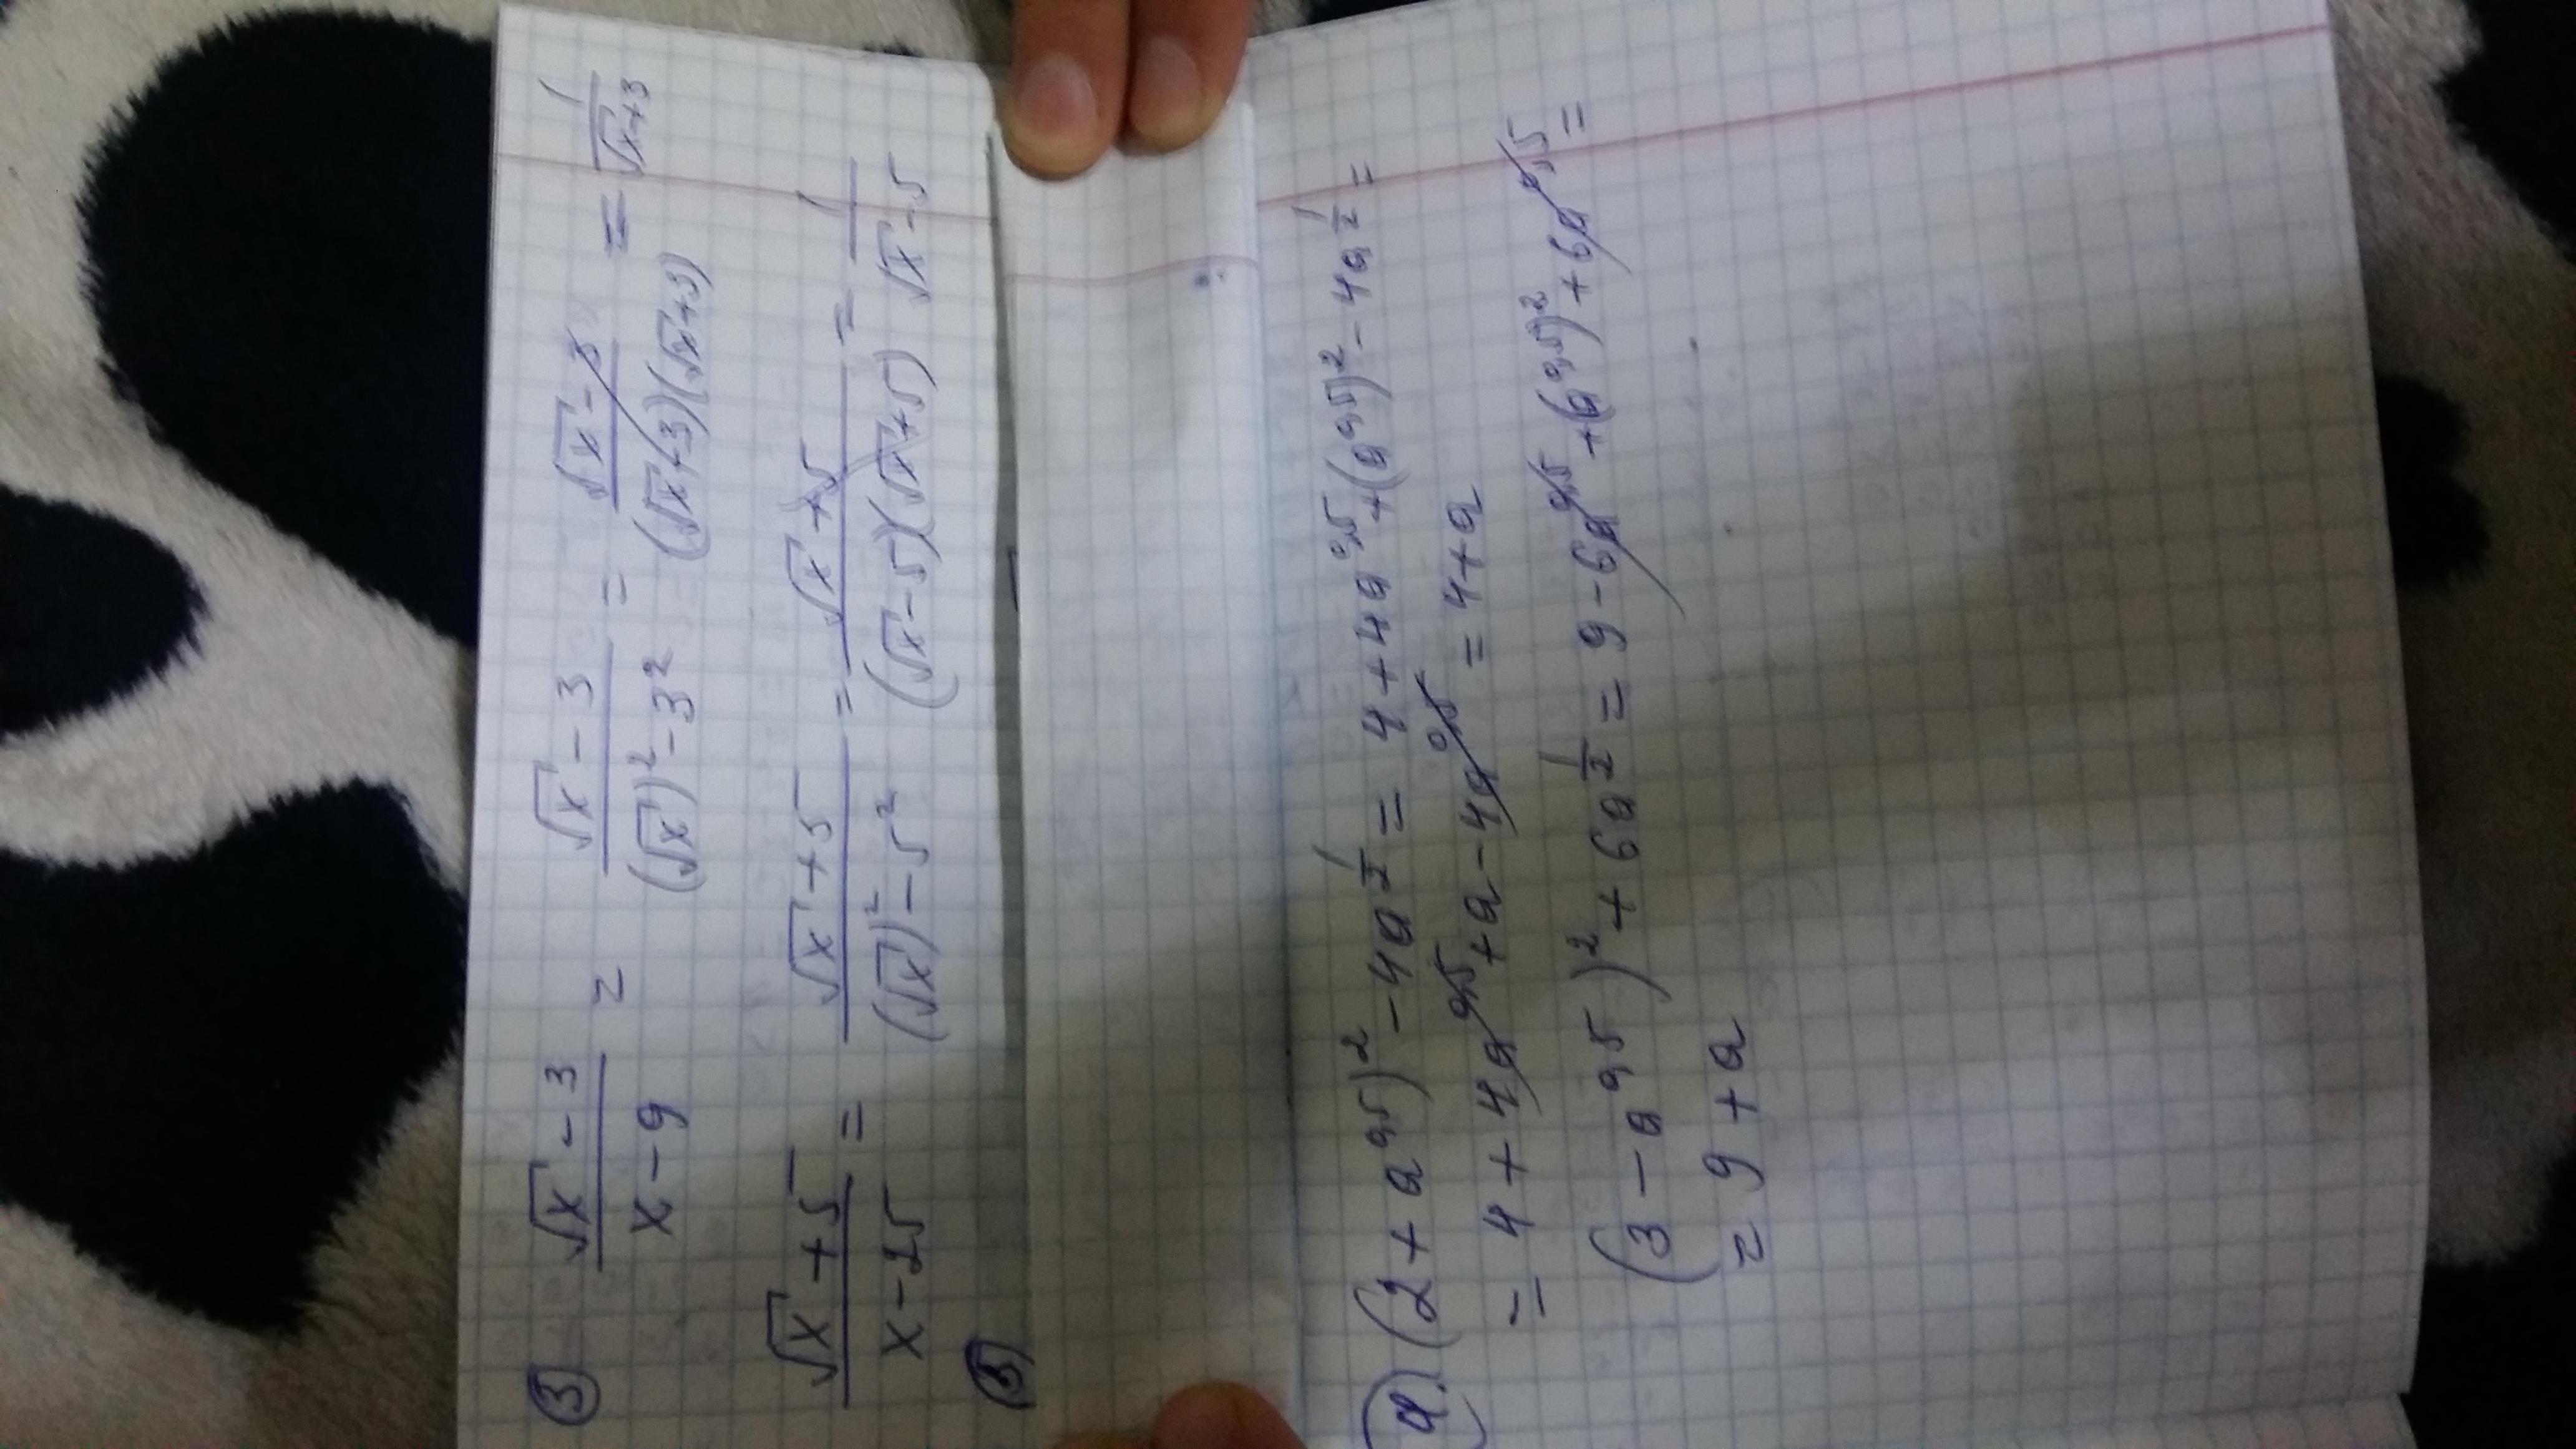 ③ (√x - 3)/(x - 9) = (√x - 3)/((√x)² - 3²) = (√x - 3)/((√x - 3)(√x + 3)) = 1/(√x + 3)
(√x + 5)/(x - 25) = (√x + 5)/((√x)² - 5²) = (√x + 5)/((√x - 5)(√x + 5)) = 1/(√x - 5)
(2 + a^0,5)² - 4a^(1/2) = 4 + 4a^0,5 + (a^0,5)² - 4a^(1/2) =
= 4 + 4a^0,5 + a - 4a^0,5 = 4 + a
(3 - a^0,5)² + 6a^(1/2) = 9 - 6a^0,5 + (a^0,5)² + 6a^0,5 =
= 9 + a